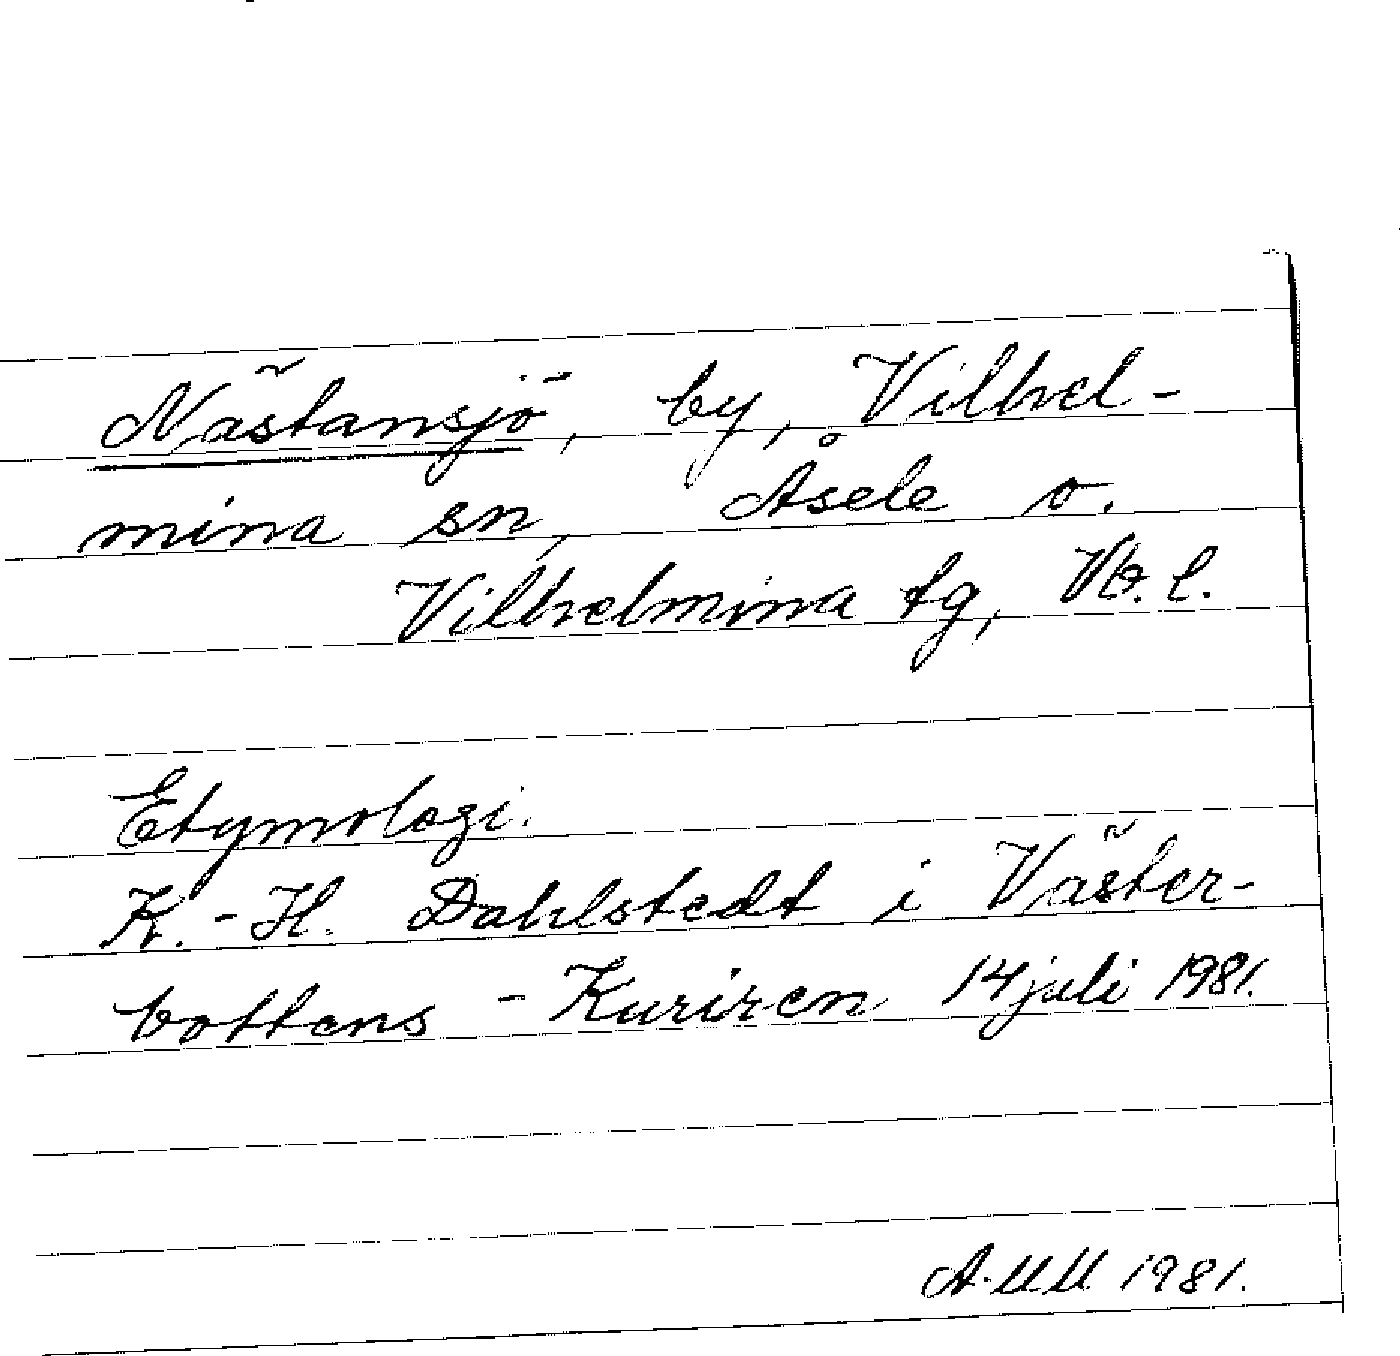 Nästansjö, by, Vilhel-
mina sn, Åsele o.
Vilhelmina tg, Vb. l.
Etymologi.
K.-H. Dahlstedt i Väster-
bottens-Kuriren 14 juli 1981.
1981.